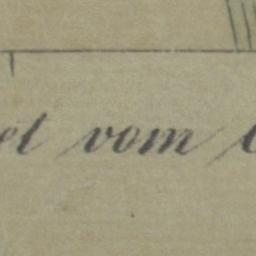 et vom